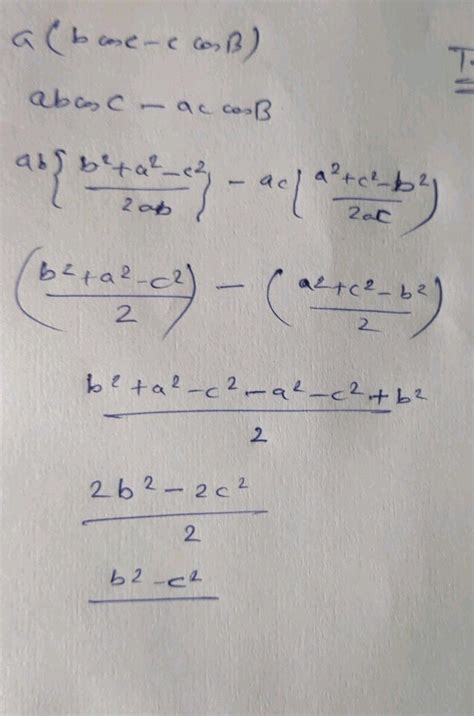 a(b cosc - c cosB)
T
ab cos C - ac cosB
ab{b²+a²-c²/2ab} - ac(a²+c²-b²/2ac)
(b²+a²-c²/2) - (a²+c²-b²/2)
b²+a²-c²-a²-c²+b²/2
2b²-2c²/2
b²-c²